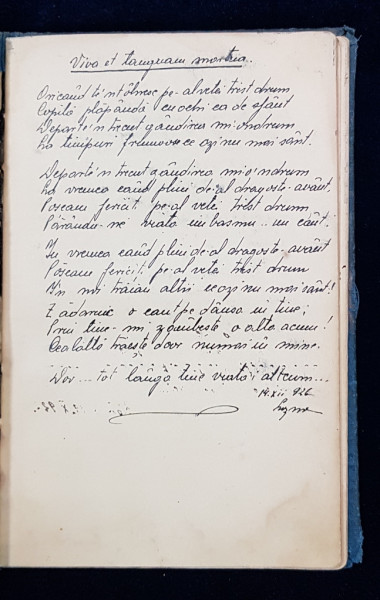 Viva et tanquam mortua.
Oricând te'ntâlnesc pe-al vieții trist drum
Copilă plăpândă cu ochi ca de sfânt
Departe'n trecut gândirea mi-o'ndrum
La timpuri frumoase ce azi nu mai sânt.
Departe'n trecut gândirea mi-o'ndrum
La vremea când plini de-al dragostei avânt
Pășeam fericiți pe-al vieții trist drum
Părându-ne viața un basm.. un cânt.
În vremea când plini de-al dragostei avânt
Pășeam fericiți pe-al vieții trist drum
'N noi trăiau alții ce azi nu mai sânt!
E adormit o caut pe dânsa în tine,
Prin tine-mi zâmbește o alta acum!
Cealaltă trăește doar numai în mine.
Dar... tot lângă tine viața-i altcum...
19.XII 926